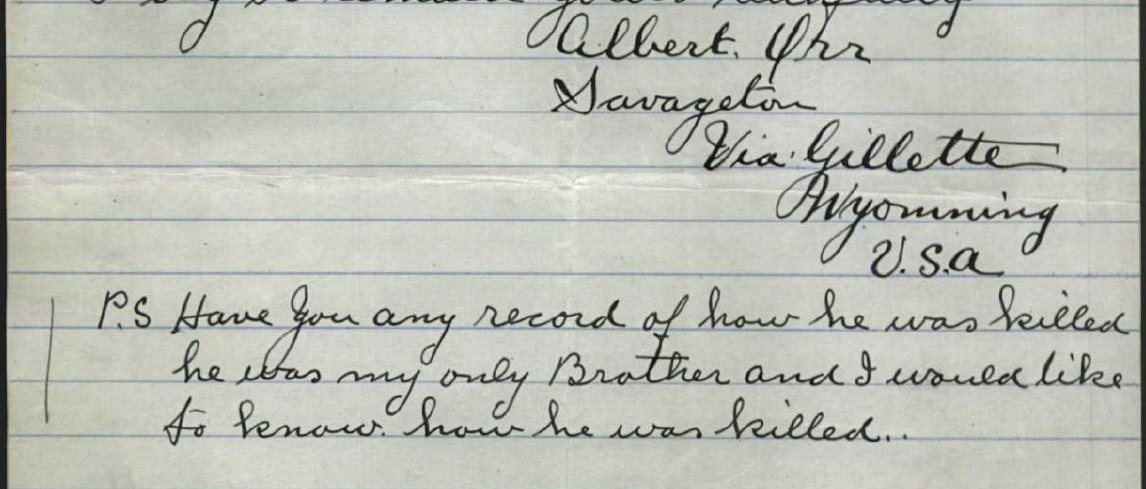 I beg to remain yours faithfully
Albert. Orr
Savageton
Via Gillette
Wyomning
U.S.a
P.S Have You any record of how he was killed
he was my only Brother and I would like
to know. how he was killed..